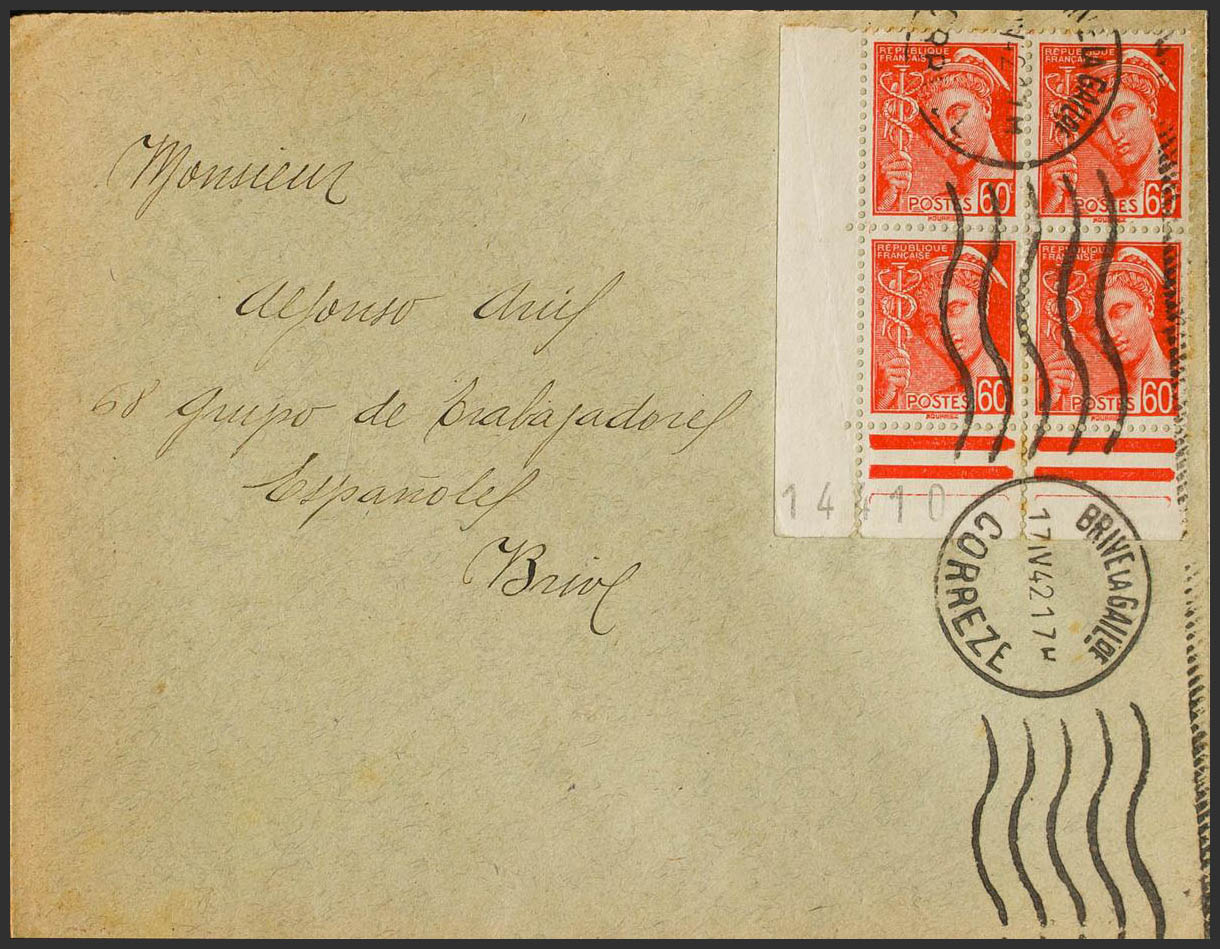 Monsieur
Alfonso
68 Grupo de Trabajadores
Españoles
Brive
REPUBLIQUE
FRANÇAISE
POSTES 60c
REPUBLIQUE
FRANÇAISE
POSTES 60
REPUBLIQUE
FRANÇAISE
POSTES 60
REPUBLIQUE
FRANÇAISE
POSTES 60
14410
BRIVE LA GAILDE
17 IV 42 17H
CORREZE